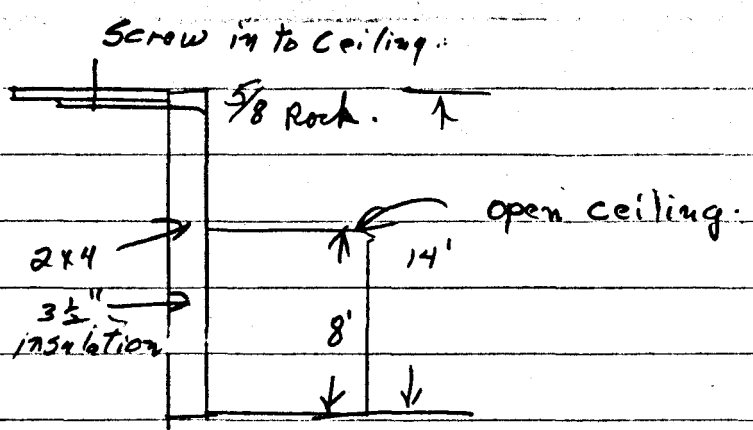 Screw in to Ceiling.
5/8 Rock.
open ceiling.
2x4
14'
3 1/2"
insulation
8'